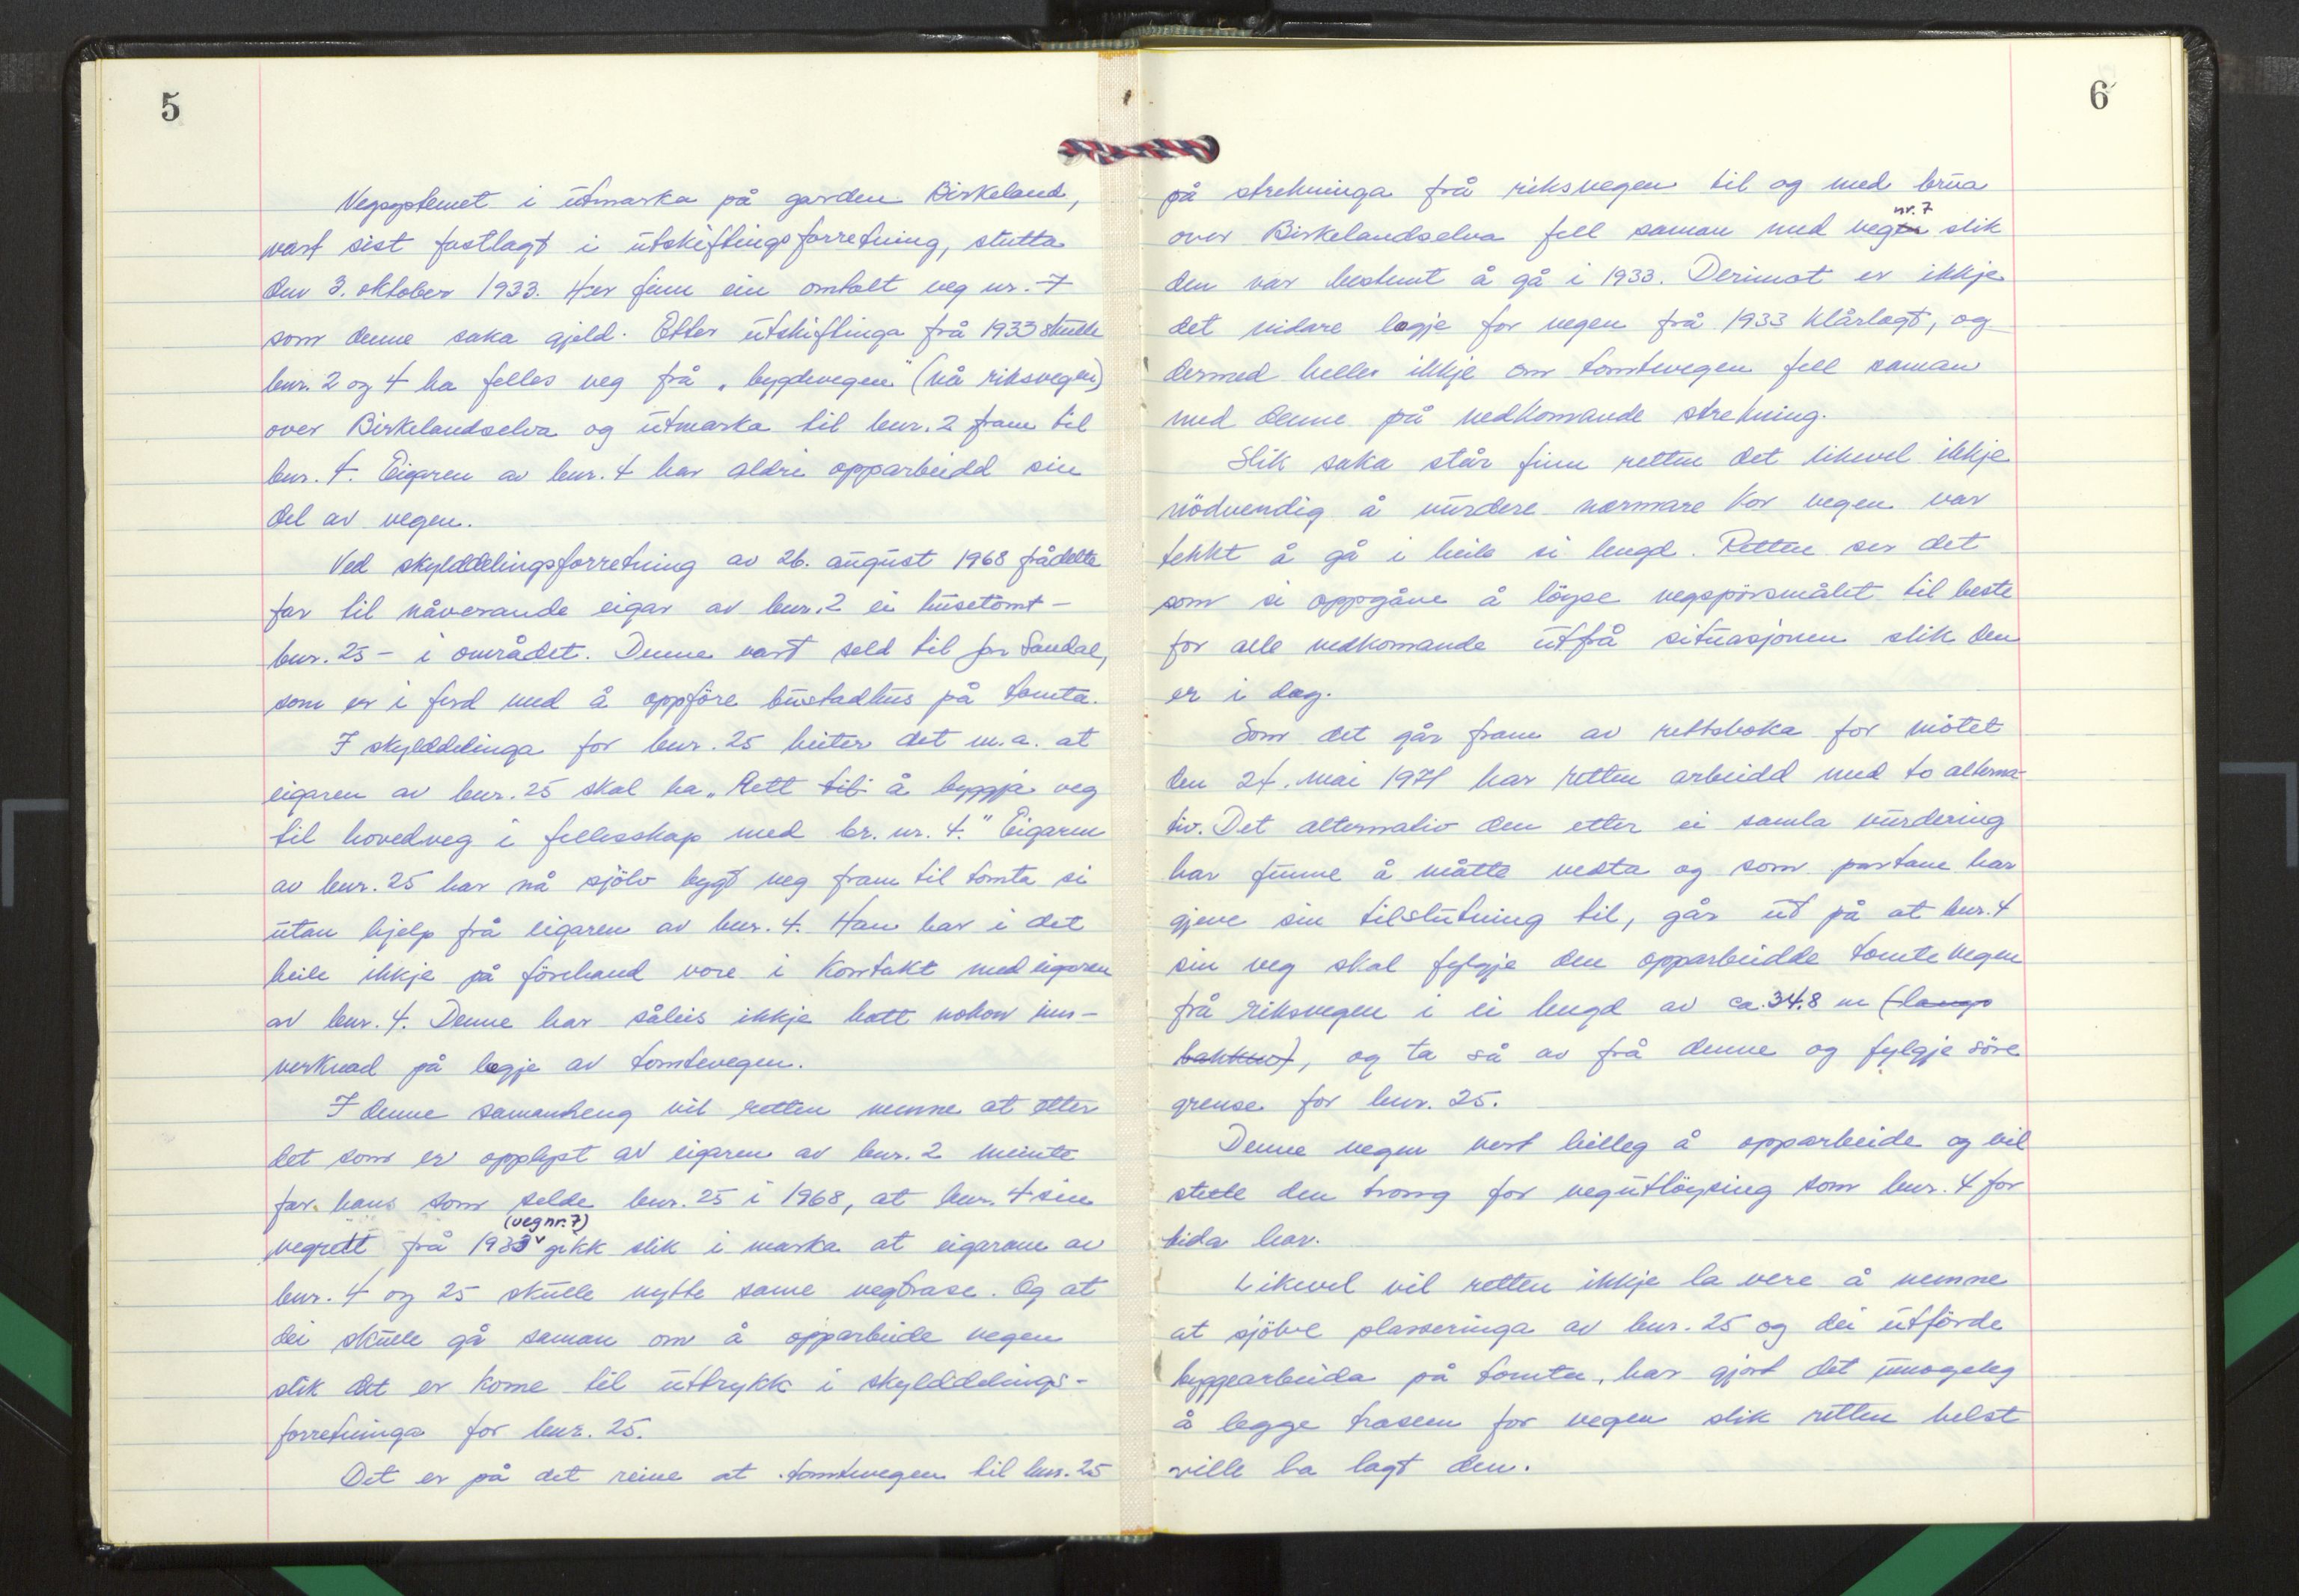 5
Vegsystemet i utmarka på garden Birkeland,
vart sist fastlagt i utskiftingsforretning, slutta
den 3. oktober 1933. Her finn ein omtalt veg nr. 7
som denne saka gjeld. Etter utskiftinga frå 1933 skulle
bnr. 2 og 4 ha felles veg frå „bygdevegen" (nå riksvegen)
over Birkelandselva og utmarka til bnr. 2 fram til
bnr. 4. Eigaren av bnr. 4 har aldri opparbeidd sin
del av vegen.
Ved skylddelingsforretning av 26. august 1968 frådelte
far til nåverande eigar av bnr. 2 ei husetomt -
bnr. 25 - i området. Denne vart seld til Jon Sandal,
som er i ferd med å oppföre bustadhus på tomta.
I skylddelinga for bnr. 25 heiter det m.a. at
eigaren av bnr. 25 skal ha „Rett til å byggja veg
til hovedveg i fellesskap med br. nr. 4." Eigaren
av bnr. 25 har nå sjölv bygt veg fram til tomta si
utan hjelp frå eigaren av bnr. 4. Han har i det
heile ikkje på förehand vore i kontakt med eigaren
av bnr. 4. Denne har såleis ikkje hatt nokon inn-
verknad på legje av tomtevegen.
I denne samanheng vil retten nemne at etter
det som er opplyst av eigaren av bnr. 2 meinte
far hans som selde bnr. 25 i 1968, at bnr. 4 sin
(veg nr. 7)
vegrett frå 1933 gikk slik i marka at eigarane av
bnr. 4 og 25 skulle nytte same vegtrase. Og at
dei skulle gå saman om å opparbeide vegen
slik det er kome til uttrykk i skylddelings-
forretninga for bnr. 25.
Det er på det reine at tomtevegen til bnr. 25
6
på strekninga frå riksvegen til og med brua
nr. 7
over Birkelandselva fell saman med vegen slik
den var bestemt å gå i 1933. Derimot er ikkje
det vidare legje for vegen frå 1933 klårlagt, og
dermed heller ikkje om tomtevegen fell saman
med denne på vedkomande strekning.
Slik saka står finn retten det likevel ikkje
nödvendig å vurdere nærmare kor vegen var
tenkt å gå i heile si lengd. Retten ser det
som si oppgåve å löyse vegspörsmålet til beste
for alle vedkomande utfrå situasjonen slik den
er i dag.
Som det går fram av rettsboka for mötet
den 24. mai 1971 har retten arbeidd med to alterna-
tiv. Det alternativ den etter ei samla vurdering
har funne å måtte vedta og som partane har
gjeve sin tilslutning til, går ut på at bnr. 4
sin veg skal fylgje den opparbeidde tomtevegen
frå riksvegen i ei lengd av ca. 34.8 m (langs
bakken), og ta så av frå denne og fylgje söre
grense for bnr. 25.
Denne vegen vert billeg å opparbeide og vil
stette den trong for vegutlöysing som bnr. 4 for
tida har.
Likevel vil retten ikkje la vere å nemne
at sjölve plasseringa av bnr. 25 og dei utförde
byggearbeida på tomta, har gjort det umogeleg
å legge traseen for vegen slik retten helst
ville ha lagt den.